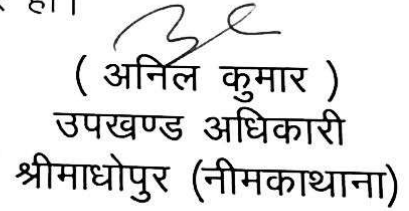 हो।
( अनिल कुमार )
उपखण्ड अधिकारी
श्रीमाधोपुर (नीमकाथाना)